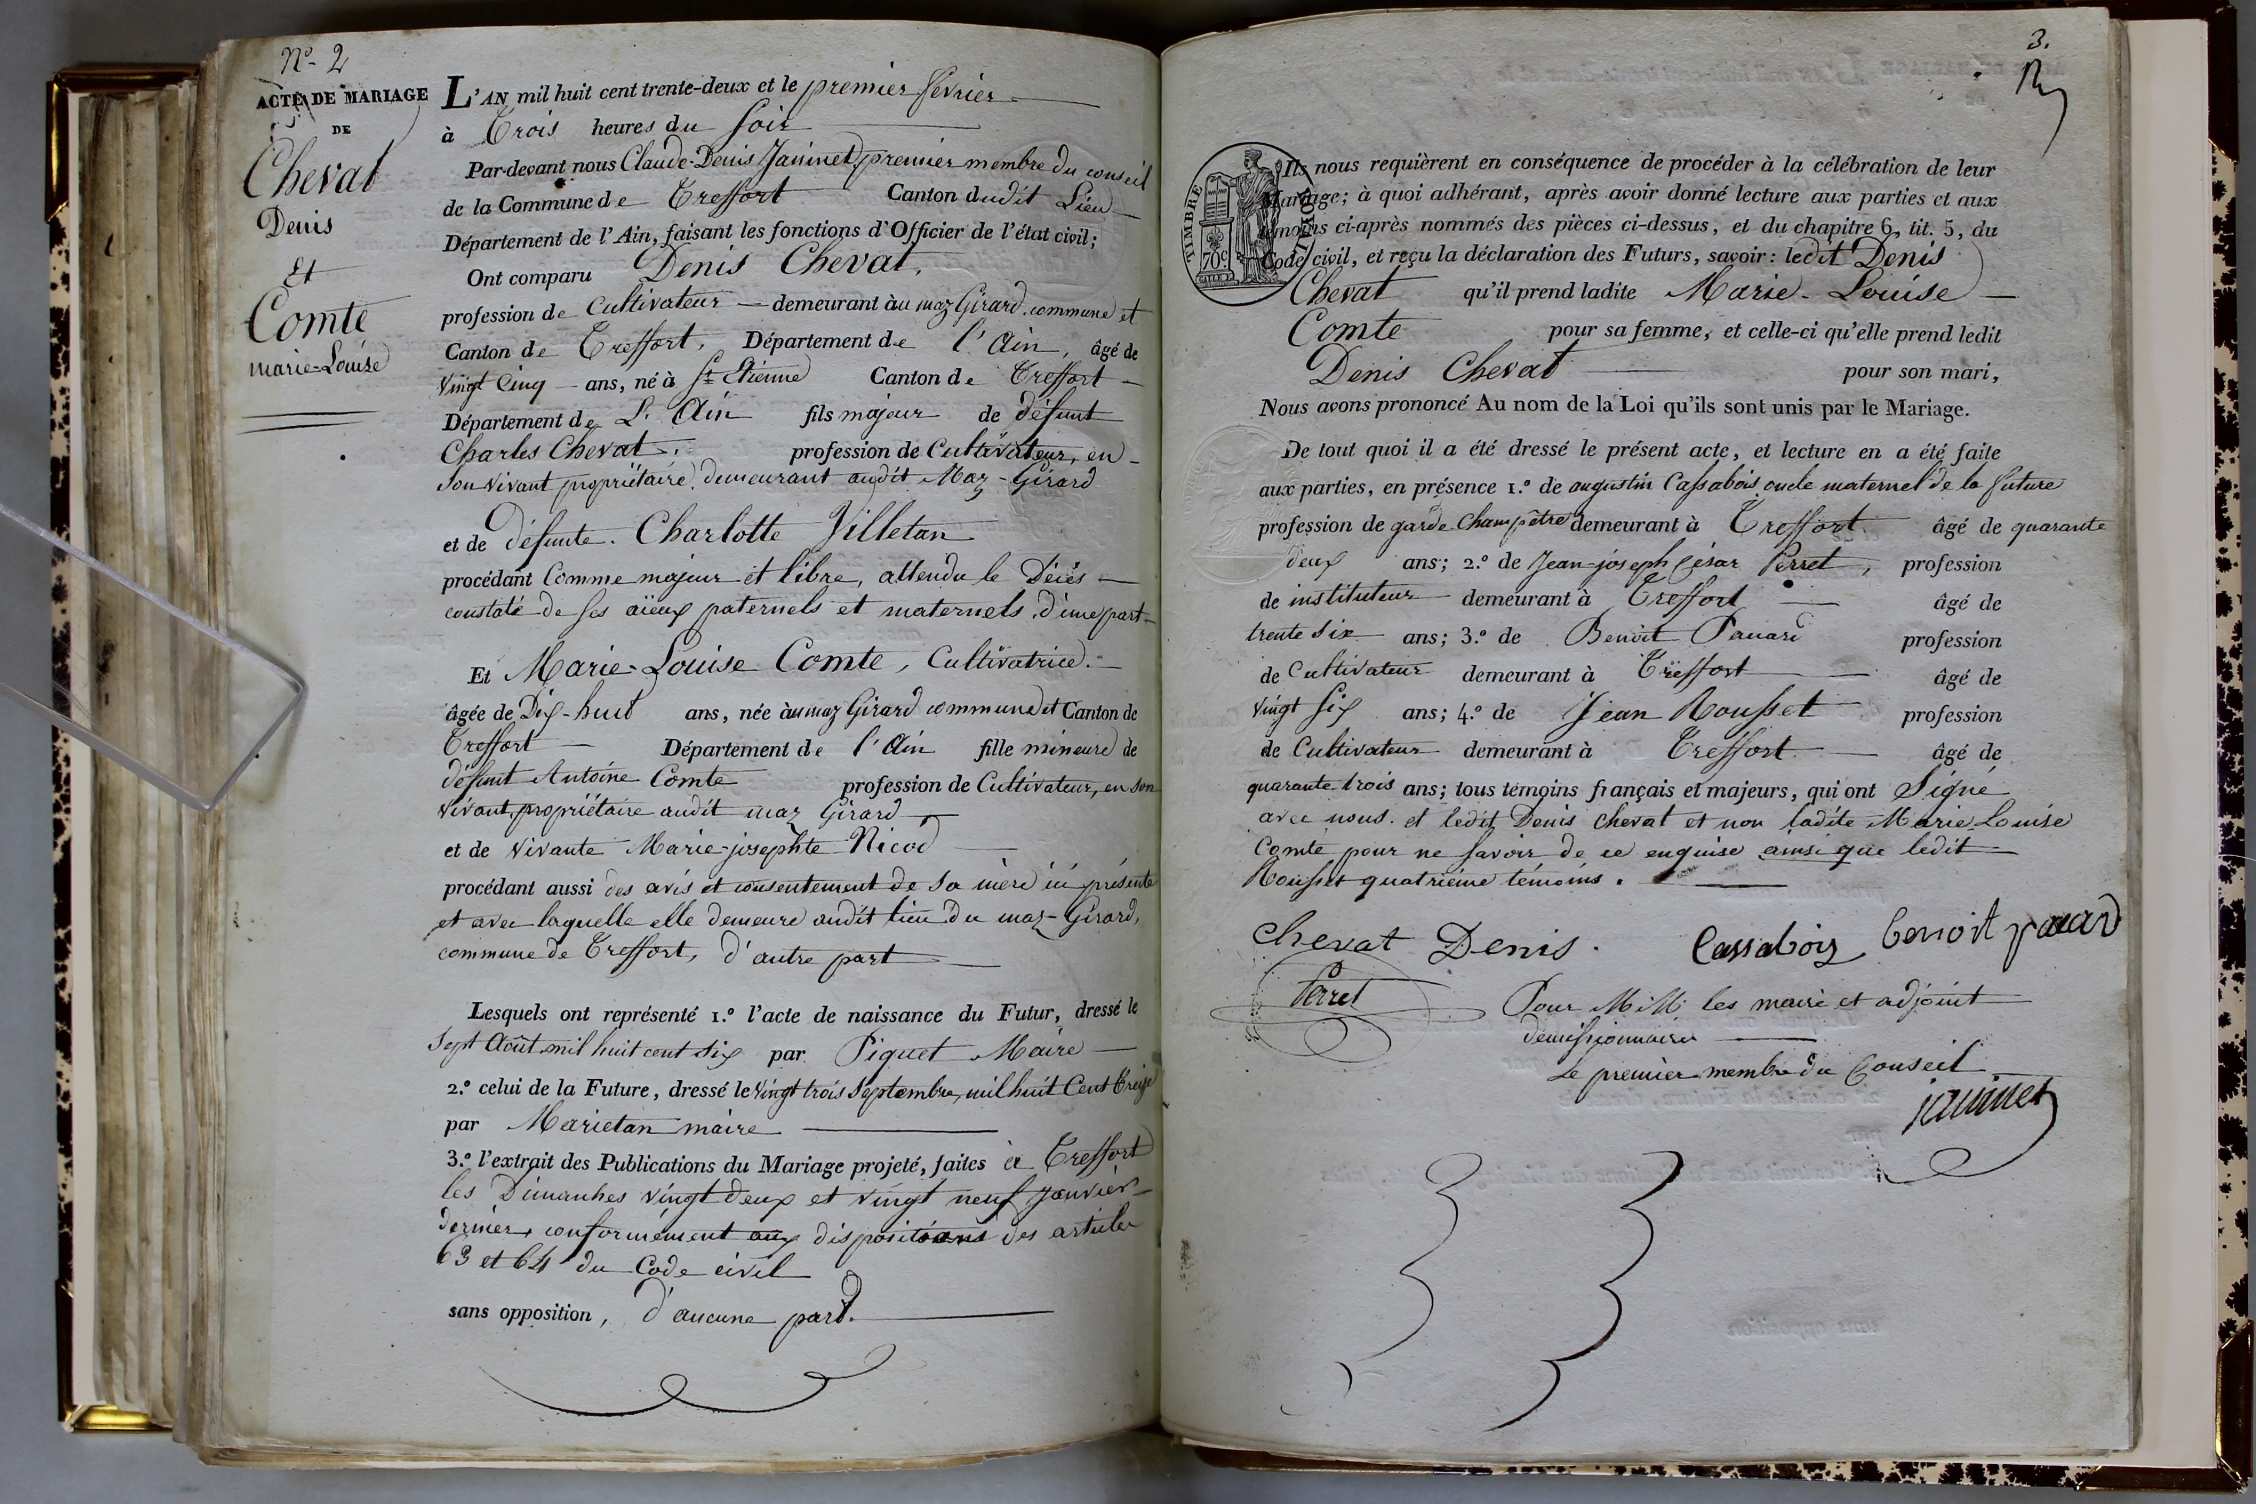 N.o 2
ACTE DE MARIAGE
DE
Chevat
Denis
Et
Comte
marie-Louise
L'AN mil huit cent trente-deux et le premier février
à Trois heures du soir
Par-devant nous Claude-Denis Janinet, premier membre du conseil
de la Commune de Treffort Canton dudit Lieu
Département de l'Ain, faisant les fonctions d'Officier de l'état civil;
Ont comparu Denis Chevat,
profession de Cultivateur demeurant àu maz Girard commune et
Canton de Treffort, Département de l'Ain, âgé de
vingt Cinq ans, né à St Etienne Canton de Treffort
Département de L'Ain fils majeur de défunt
Charles Chevat, profession de Cultivateur, en
son vivant propriétaire demeurant audit Maz-Girard
et de défunte Charlotte Villetan
procédant Comme majeur et libre, attendu le Décès
constaté de ses aïeux paternels et maternels, d'une part
Et Marie-Louise Comte, Cultivatrice.
âgée de Dix-huit ans, née àu maz Girard commune et Canton de
Treffort Département de l'Ain fille mineure de
défunt Antoine Comte profession de Cultivateur, en son
vivant, propriétaire audit maz Girard
et de vivante Marie-josephte Nicod
procédant aussi des avis et consentement de sa mère ici présente
et avec laquelle elle demeure audit lieu du maz-Girard,
commune de Treffort, d'autre part
Lesquels ont représenté 1.o l'acte de naissance du Futur, dressé le
sept Août mil huit cent six par Piquet Maire
2.o celui de la Future, dressé le vingt trois Septembre, mil huit Cent Treize
par Marietan maire
3.o l'extrait des Publications du Mariage projeté, faites à Treffort
les Dimanches vingt deux et vingt neuf janvier
dernier, conformément aux dispositions des articles
63 et 64 du Code civil
sans opposition, d'aucune part.
3.
TIMBRE
ROYAL
70c
Ils nous requièrent en conséquence de procéder à la célébration de leur
Mariage; à quoi adhérant, après avoir donné lecture aux parties et aux
témoins ci-après nommés des pièces ci-dessus, et du chapitre 6, tit. 5, du
Code civil, et reçu la déclaration des Futurs, savoir: ledit Denis
Chevat qu'il prend ladite Marie-Louise
Comte pour sa femme, et celle-ci qu'elle prend ledit
Denis Chevat pour son mari,
Nous avons prononcé Au nom de la Loi qu'ils sont unis par le Mariage.
De tout quoi il a été dressé le présent acte, et lecture en a été faite
aux parties, en présence 1.o de augustin Cassabois oncle maternel de la future
profession de garde-Champêtre demeurant à Treffort âgé de quarante
deux ans; 2.o de Jean-joseph César Perret, profession
de instituteur demeurant à Treffort âgé de
trente six ans; 3.o de Benoit Pauard profession
de Cultivateur demeurant à Treffort âgé de
vingt six ans; 4.o de Jean Rousset profession
de Cultivateur demeurant à Treffort âgé de
quarante trois ans; tous témoins français et majeurs, qui ont Signé
avec nous et ledit Denis chevat et non ladite Marie Louise
Comte pour ne savoir de ce enquise ainsi que ledit
Rousset quatrième témoins.
chevat Denis. Cassabois benoit pauard
Perret
Pour M.M. les maire et adjoint
démissionnaires
Le premier membre du Conseil
janinet